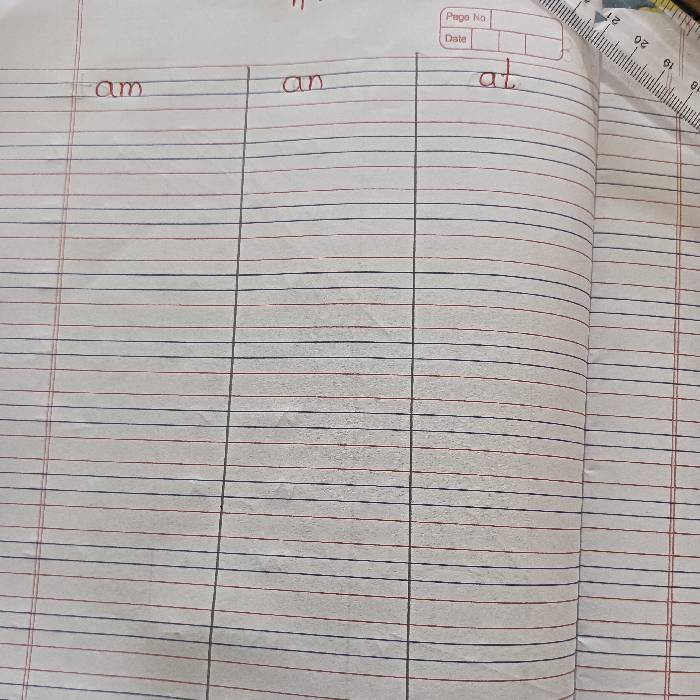 Page No.
Date
am an at
21
20
19